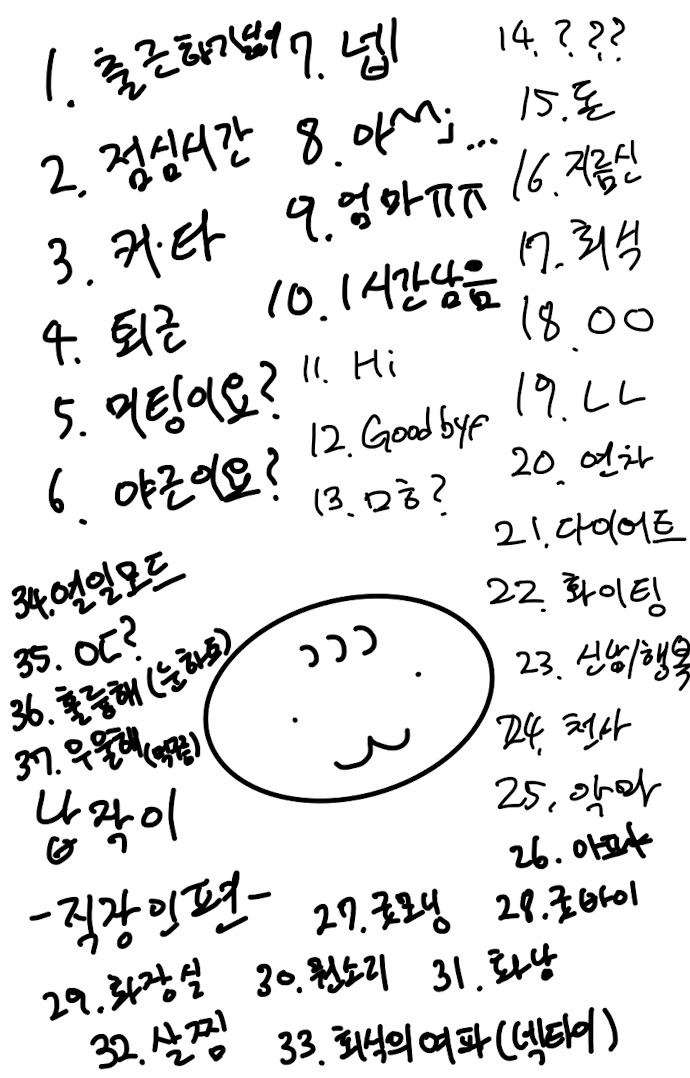 1. 출근하기싫어
2. 점심시간
3. 커·타
4. 퇴근
5. 미팅이요?
6. 야근이요?
7. 넵!
8. 아^^;...
9. 엄마ㅠㅠ
10. 1시간남음
11. Hi
12. Goodbye
13. ㅁㅎ?
14. ???
15. 돈
16. 지름신
17. 회식
18. ㅇㅇ
19. ㄴㄴ
20. 연차
21. 다이어트
22. 화이팅
23. 신남/행복
24. 천사
25. 악마
26. 아파
27. 굿모닝
28. 굿바이
29. 화장실
30. 뭔소리
31. 화남
32. 살찜
33. 회식의여파(넥타이)
34. 열일모드
35. ㅇㄷ?
36. 훌륭해(눈하트)
37. 우울해(먹구름)
납작이
-직장인편-